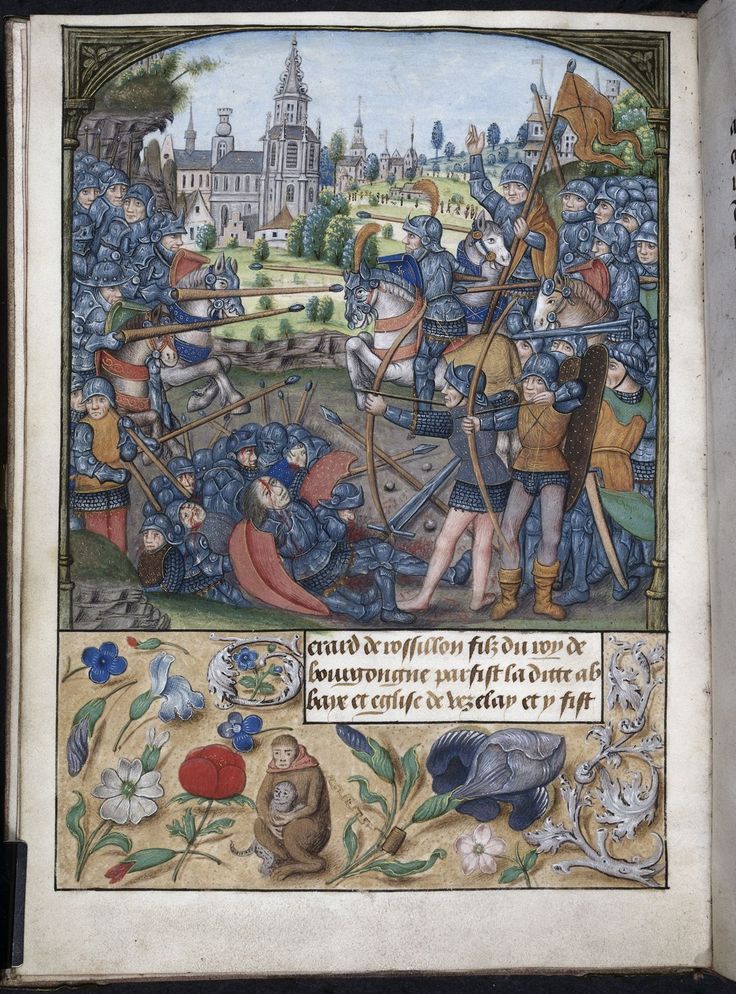 Gerard de rossillon filz du roy de
bourgongne parfist la ditte ab
baye et eglise de vezelay et y fist